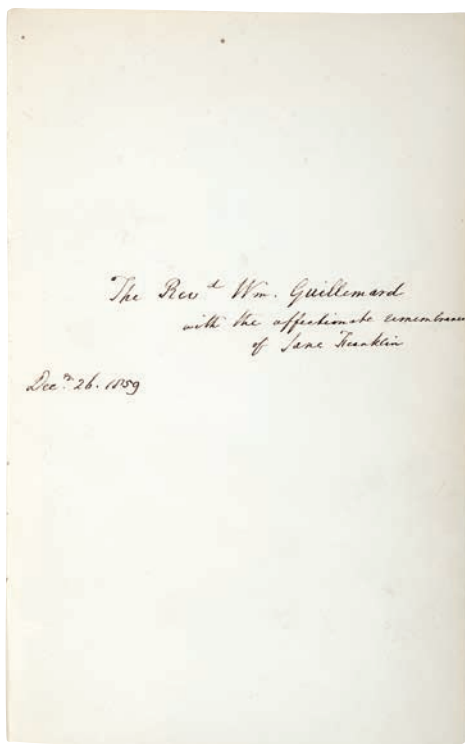 The Revd Wm. Guillemard
with the affectionate remembrance
of Jane Franklin
Decr. 26. 1859